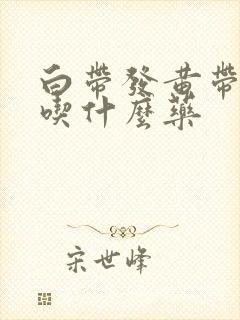 白帶發黃帶
喫什麼藥
宋世峰